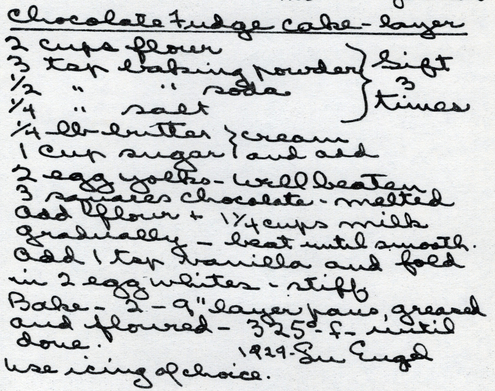 Chocolate Fudge cake - layer
2 cups flour
3 tsp baking powder } Sift
1/2 " " soda 3
1/4 " salt times
1/4 lb butter } cream
1 cup sugar and add
2 egg yolks - well beaten
3 squares chocolate - melted
add flour + 1 1/4 cups milk
gradually - beat until smooth.
Add 1 tsp vanilla and fold
in 2 egg whites - stiff
Bake - 2 - 9" layer pans, greased
and floured - 325° f - until
done. 1929 - Su Engel
use icing of choice.